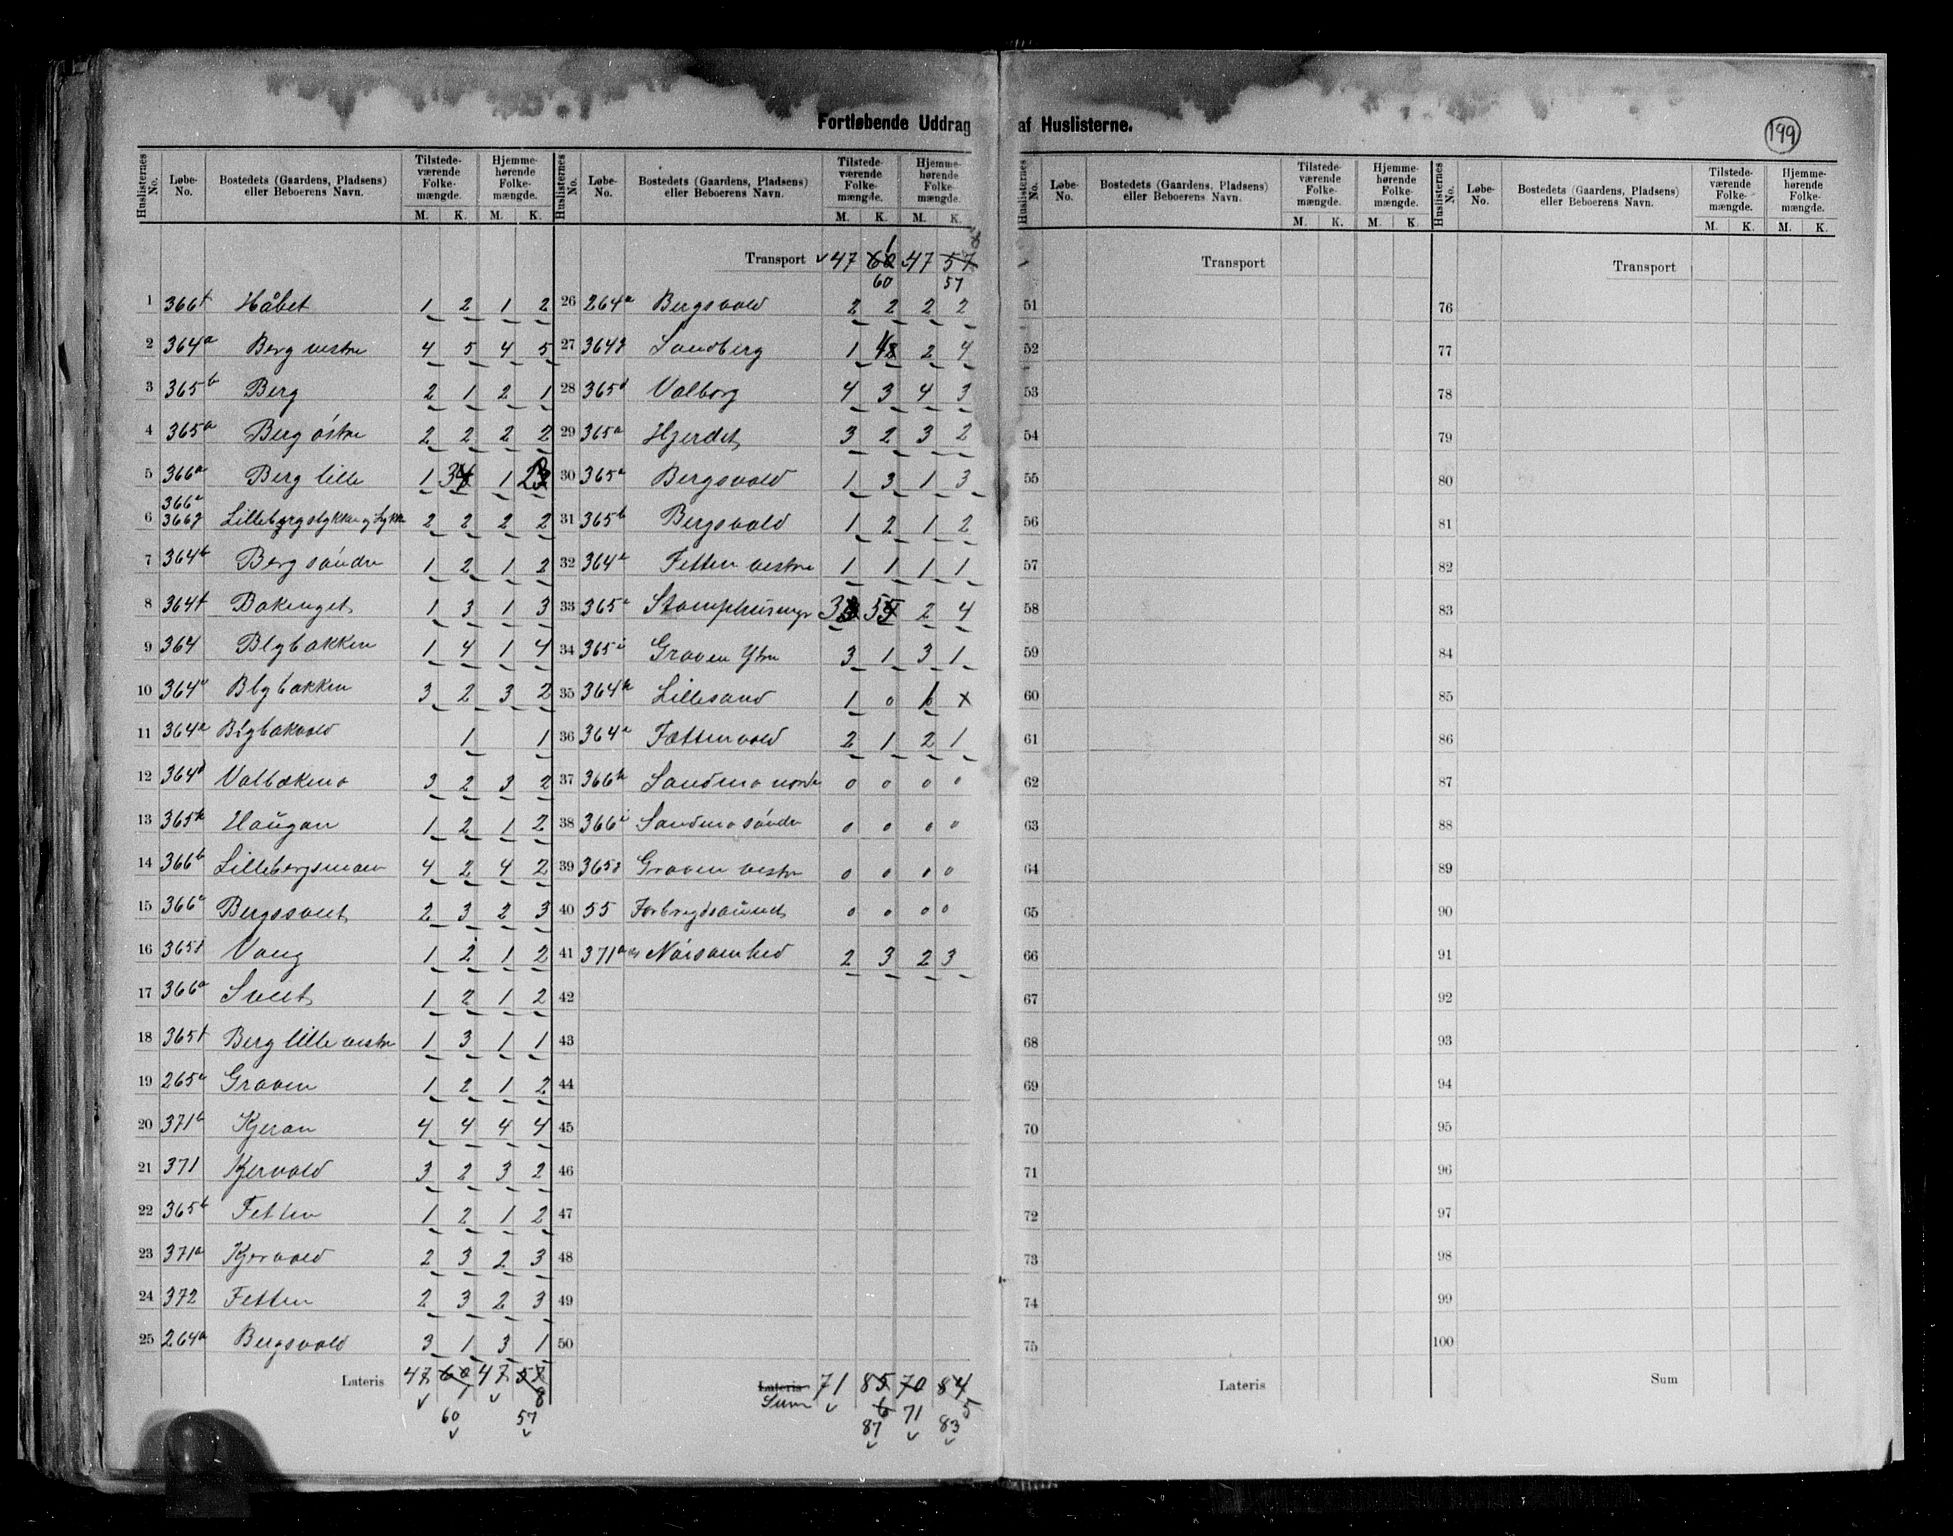 Fortløbende Uddrag af Huslisterne.
199
Huslisternes No. Løbe-No. Bostedets (Gaardens, Pladsens) eller Beboerens Navn. Tilstedeværende Folkemængde. M. K. Hjemmehørende Folkemængde. M. K.
1 366f Håbet 1 2 1 2
2 364a Berg vestre 4 5 4 5
3 365b Berg 2 1 2 1
4 365a Berg östre 2 2 2 2
5 366a Berg lille 1 3 1 2
6 366a 2 2 2 2
7 364b Berg söndre 1 2 1 2
8 364f Bakenget 1 3 1 3
9 364 Blybakken 1 4 1 4
10 364 Blybakken 3 2 3 2
11 364a 1 1
12 364d Valbakmo 3 2 3 2
13 365k Haugan 1 2 1 2
14 366b Lillebergsmoen 4 2 4 2
15 366a Bergsveet 2 3 2 3
16 365 Vang 1 2 1 2
17 366a Sveet 1 2 1 2
18 365f Berg lille vestre 1 3 1 1
19 265a Graven 1 2 1 2
20 371b Kjeran 4 4 4 4
21 371 Kjervold 3 2 3 2
22 365b Fetten 1 2 1 2
23 371a Kjervold 2 3 2 3
24 372 Fetten 2 3 2 3
25 264a Bergsvold 3 1 3 1
Lateris 47 60 47 57
60 57
Huslisternes No. Løbe-No. Bostedets (Gaardens, Pladsens) eller Beboerens Navn. Tilstedeværende Folkemængde. M. K. Hjemmehørende Folkemængde. M. K.
Transport 47 60 47 57
60 57
26 264a Bergsvold 2 2 2 2
27 364g Sandberg 1 4 2 4
28 365d Valborg 4 3 4 3
29 365a Hjerdet 3 2 3 2
30 365a Bergsvold 1 3 1 3
31 365b Bergsvold 1 2 1 2
32 364a Fetten vestre 1 1 1 1
33 365 3 5 2 4
34 365i Graven Ytre 3 1 3 1
35 364k Lillesand 1 0 1 x
36 364a Fættenvold 2 1 2 1
37 366h Sandmo nordre 0 0 0 0
38 366i Sandmo söndre 0 0 0 0
39 365g Graven vestre 0 0 0 0
40 55 0 0 0 0
41 371a Nöisomhed 2 3 2 3
42
43
44
45
46
47
48
49
50
Lateris Sum 71 85 70 84
6 71 5
87 83
Huslisternes No. Løbe-No. Bostedets (Gaardens, Pladsens) eller Beboerens Navn. Tilstedeværende Folkemængde. M. K. Hjemmehørende Folkemængde. M. K.
Transport
51
52
53
54
55
56
57
58
59
60
61
62
63
64
65
66
67
68
69
70
71
72
73
74
75
Lateris
Huslisternes No. Løbe-No. Bostedets (Gaardens, Pladsens) eller Beboerens Navn. Tilstedeværende Folkemængde. M. K. Hjemmehørende Folkemængde. M. K.
Transport
76
77
78
79
80
81
82
83
84
85
86
87
88
89
90
91
92
93
94
95
96
97
98
99
100
Sum